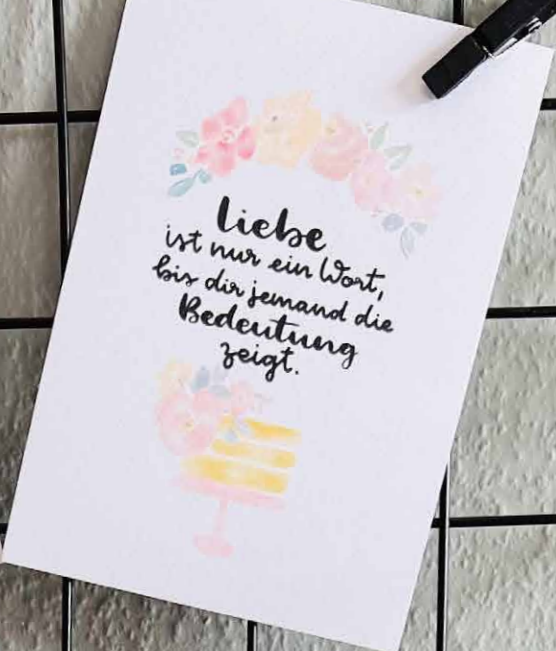 Liebe
ist nur ein Wort,
bis dir jemand die
Bedeutung
zeigt.